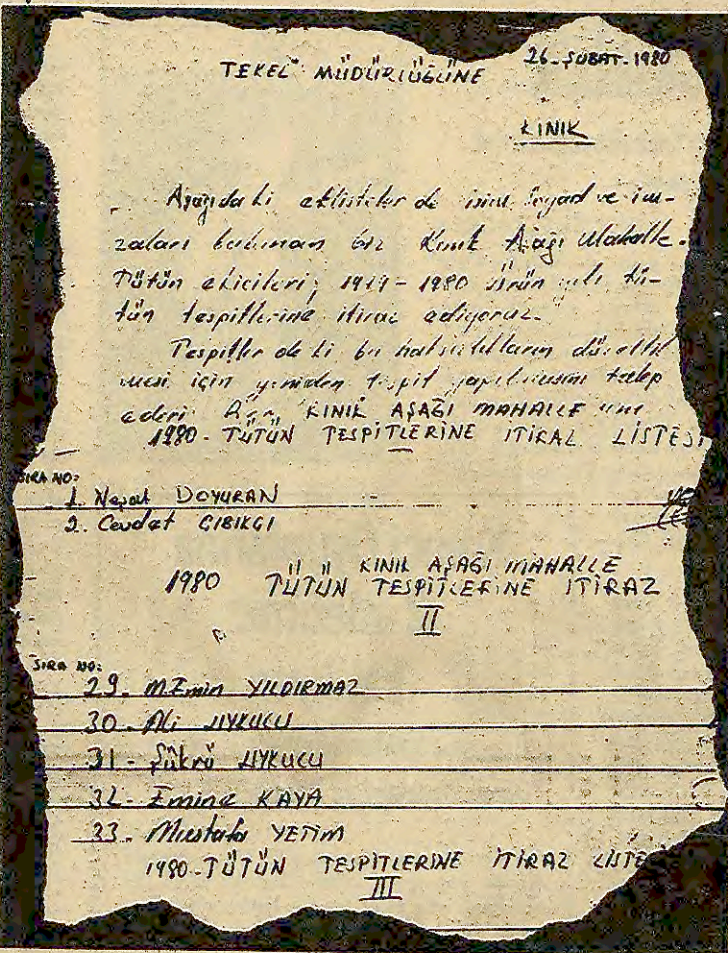 26-ŞUBAT-1980
TEKEL MÜDÜRLÜĞÜNE
KINIK
Aşağıdaki ek listeler de isim Soyad ve im-
zaları bulunan biz Kınık Aşağı Mahalle
Tütün ekicileri, 1979-1980 ürün yılı tü-
tün tespitlerine itiraz ediyoruz.
Tespitler de ki bu haksızlıkların düzeltil
mesi için yeniden tespit yapılmasını talep
ederiz KINIK AŞAĞI MAHALLE nin
1980-TÜTÜN TESPİTLERİNE İTİRAZ LİSTESİ
SIRA NO:
1. Nejat DOYURAN
2. Cevdet CIBIKCI
KINIK AŞAĞI MAHALLE
1980 TÜTÜN TESPİTLERİNE İTİRAZ
II
SIRA NO:
29. M Emin YILDIRMAZ
30. Ali UYKUCU
31- Şükrü UYKUCU
32- Emine KAYA
33. Mustafa YETİM
1980-TÜTÜN TESPİTLERİNE İTİRAZ LİSTE
III